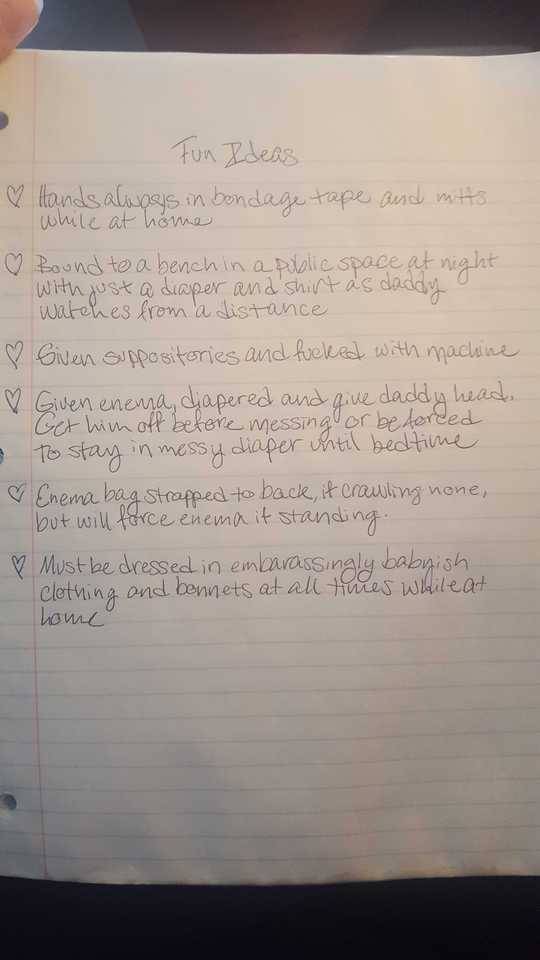 Fun Ideas
♡ Hands always in bondage tape and mitts
while at home
♡ Bound to a bench in a public space at night
with just a diaper and shirt as daddy
watches from a distance
♡ Given suppositories and fucked with machine
♡ Given enema, diapered and give daddy head.
Get him off before messing or be forced
to stay in messy diaper until bedtime
♡ Enema bag strapped to back, if crawling none,
but will force enema if standing.
♡ Must be dressed in embarassingly babyish
clothing and bonnets at all times while at
home